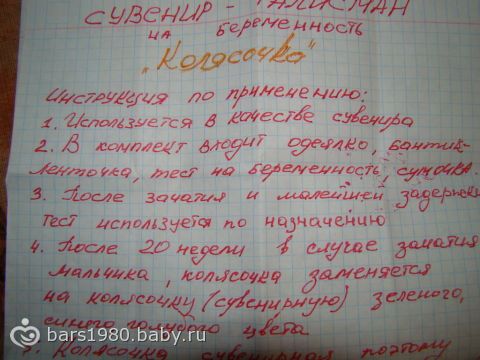 СУВЕНИР - ТАЛИСМАН
НА БЕРЕМЕННОСТЬ
„Колясочка"
Инструкция по применению:
1. Используется в качестве сувенира
2. В комплект входит одеялко, бантик-
ленточка, тест на беременность, сумочка.
3. После зачатия и малейшей задержки
тест используется по назначению
4. После 20 недели в случае зачатия
мальчика, колясочка заменяется
на колясочку (сувенирную) зеленого,
синего голубого цвета
Колясочка сувенирная поэтому
bars1980.baby.ru